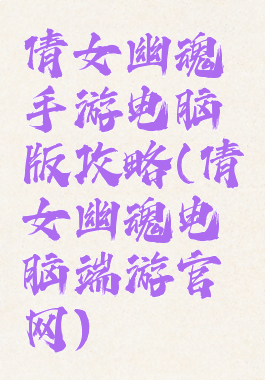 倩女幽魂
手游电脑
版攻略(倩
女幽魂电
脑端游官
网)